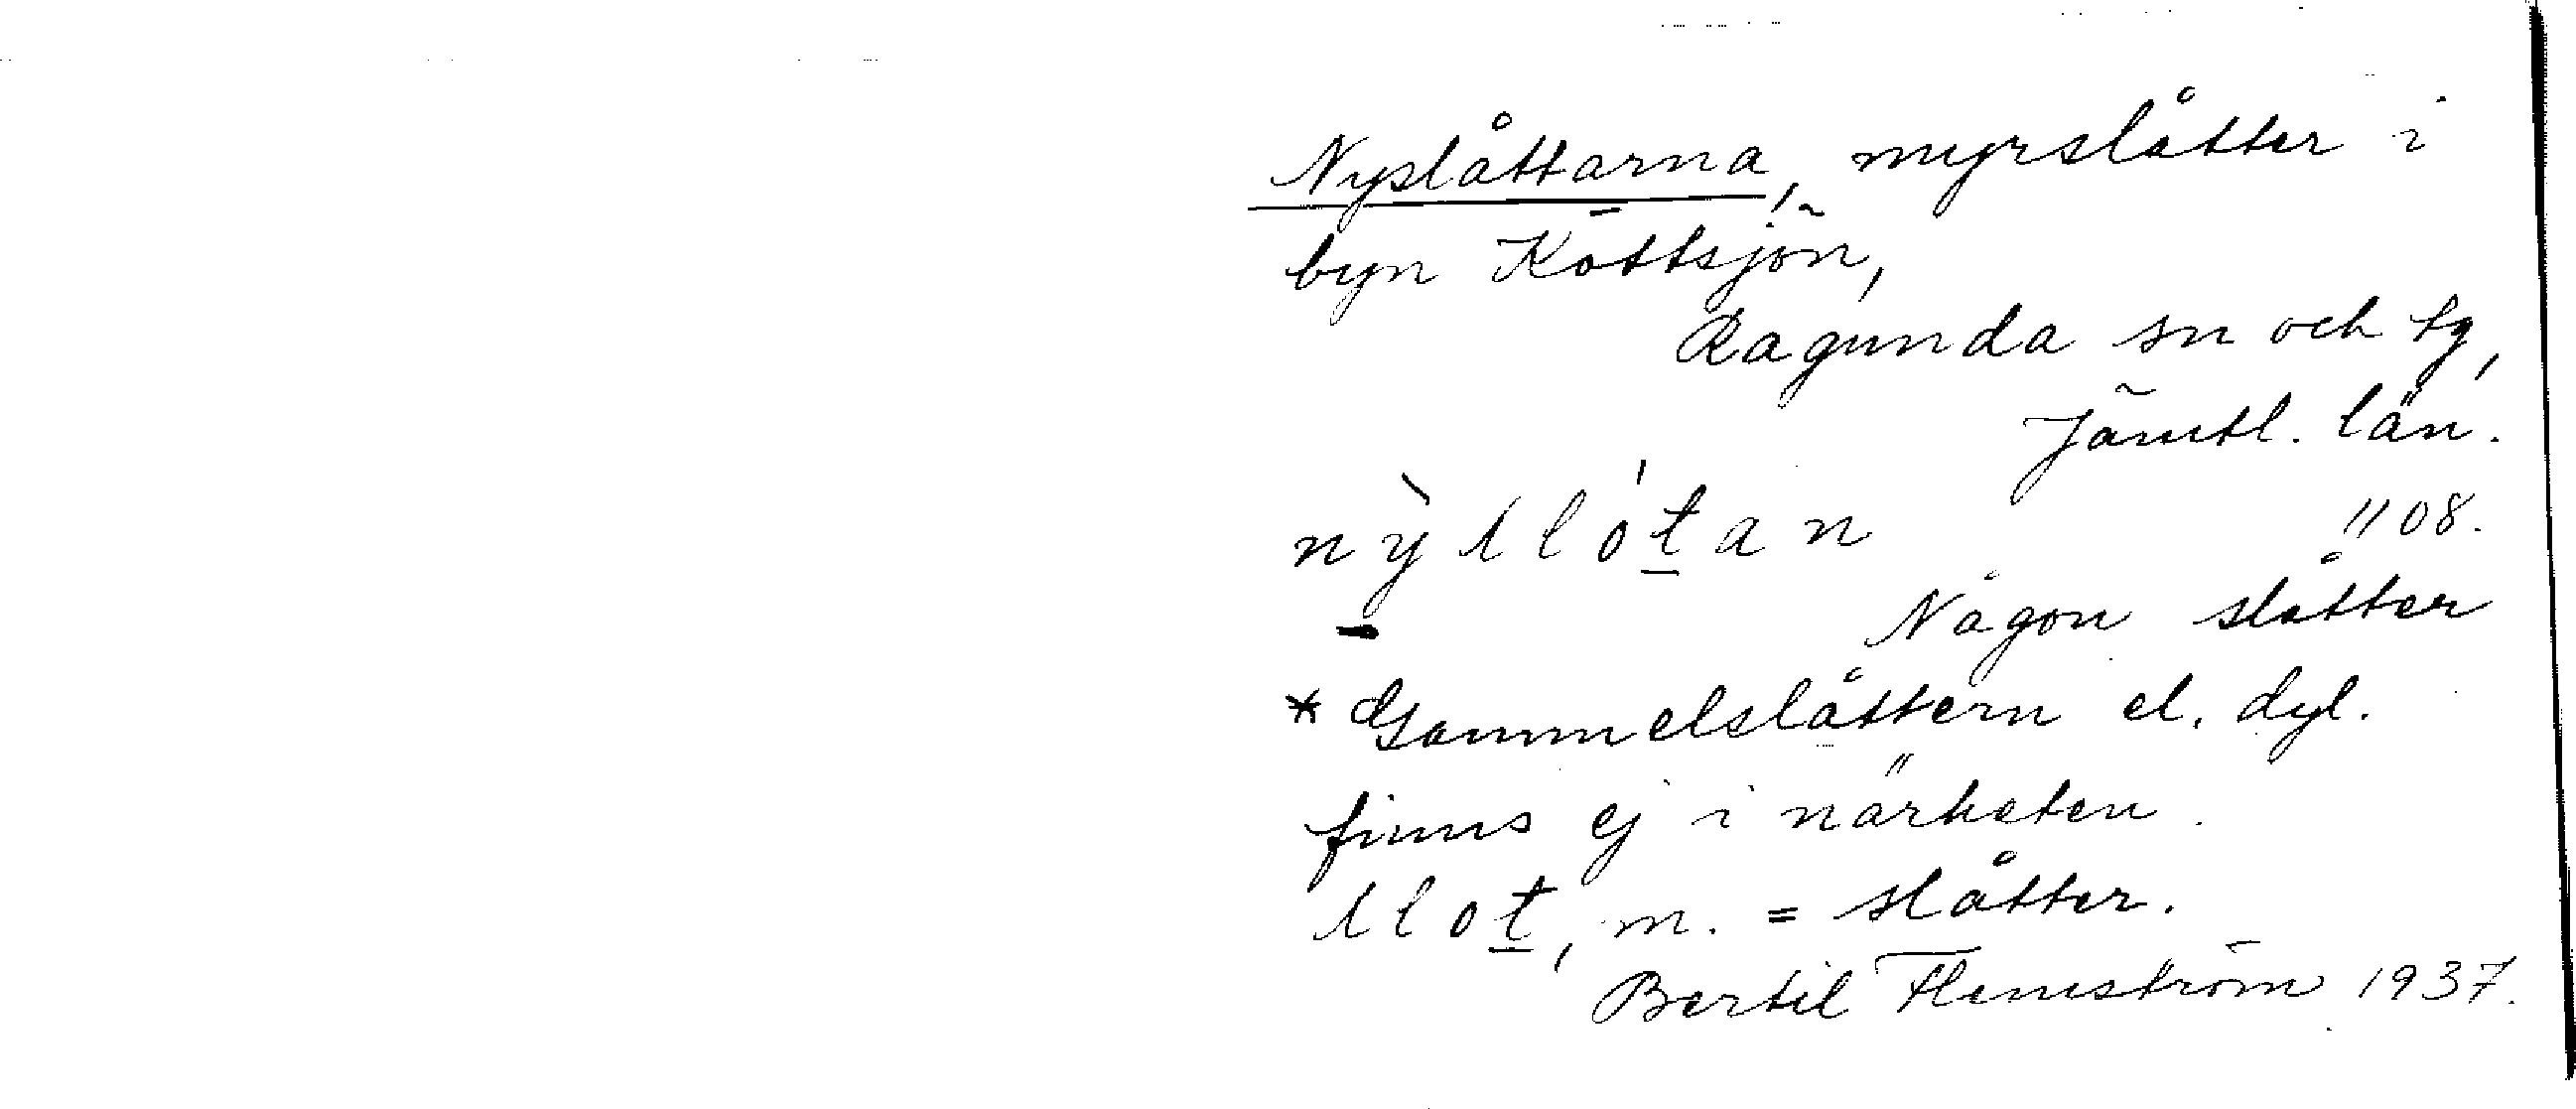 Nyslåttarna, myrslåtter i
byn Köttsjön,
Ragunda sn och tg,
Jämtl. län.
nỳʃlót̲an 1108.
Någon slåtter
* Gammelslåttern el. dyl.
finns ej i närheten.
ʃlot̲, m. = slåtter.
Bertil Flemström 1937.